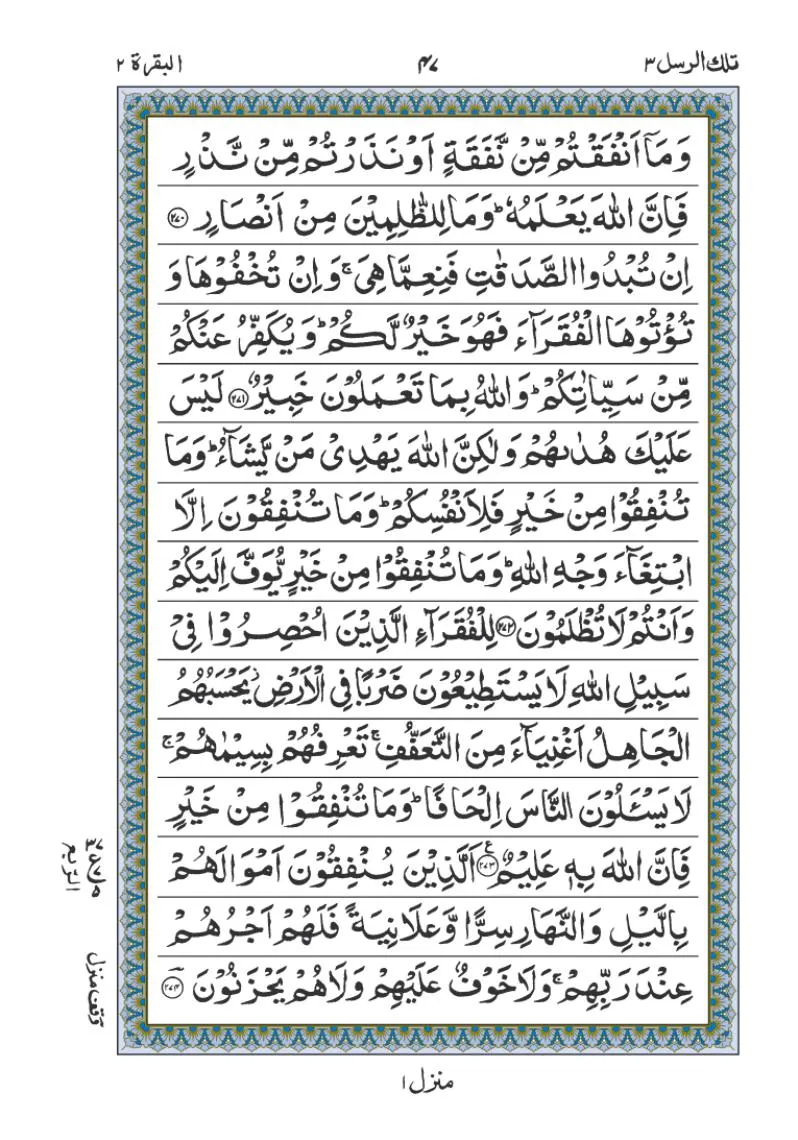 تلك الرسل ٣
٤٧
البقرة ٢
وَمَاۤ اَنْفَقْتُمْ مِّنْ نَّفَقَةٍ اَوْ نَذَرْتُمْ مِّنْ نَّذْرٍ
فَاِنَّ اللّٰهَ يَعْلَمُهٗ ؕ وَمَا لِلظّٰلِمِيْنَ مِنْ اَنْصَارٍ ﴿٢٧٠﴾
اِنْ تُبْدُوا الصَّدَقٰتِ فَنِعِمَّا هِىَ ۚ وَاِنْ تُخْفُوْهَا وَ
تُؤْتُوْهَا الْفُقَرَآءَ فَهُوَ خَيْرٌ لَّكُمْ ؕ وَيُكَفِّرُ عَنْكُمْ
مِّنْ سَيِّاٰتِكُمْ ؕ وَاللّٰهُ بِمَا تَعْمَلُوْنَ خَبِيْرٌ ﴿٢٧١﴾ لَيْسَ
عَلَيْكَ هُدٰٮهُمْ وَلٰكِنَّ اللّٰهَ يَهْدِىْ مَنْ يَّشَآءُ ؕ وَمَا
تُنْفِقُوْا مِنْ خَيْرٍ فَلِاَنْفُسِكُمْ ؕ وَمَا تُنْفِقُوْنَ اِلَّا
ابْتِغَآءَ وَجْهِ اللّٰهِ ؕ وَمَا تُنْفِقُوْا مِنْ خَيْرٍ يُّوَفَّ اِلَيْكُمْ
وَاَنْتُمْ لَا تُظْلَمُوْنَ ﴿٢٧٢﴾ لِلْفُقَرَآءِ الَّذِيْنَ اُحْصِرُوْا فِىْ
سَبِيْلِ اللّٰهِ لَا يَسْتَطِيْعُوْنَ ضَرْبًا فِى الْاَرْضِ يَحْسَبُهُمُ
الْجَاهِلُ اَغْنِيَآءَ مِنَ التَّعَفُّفِ ۚ تَعْرِفُهُمْ بِسِيْمٰهُمْ ۚ
لَا يَسْـَٔلُوْنَ النَّاسَ اِلْحَافًا ؕ وَمَا تُنْفِقُوْا مِنْ خَيْرٍ
فَاِنَّ اللّٰهَ بِهٖ عَلِيْمٌ ﴿٢٧٣﴾ اَلَّذِيْنَ يُنْفِقُوْنَ اَمْوَالَهُمْ
بِالَّيْلِ وَالنَّهَارِ سِرًّا وَّعَلَانِيَةً فَلَهُمْ اَجْرُهُمْ
عِنْدَ رَبِّهِمْ ۚ وَلَا خَوْفٌ عَلَيْهِمْ وَلَا هُمْ يَحْزَنُوْنَ ﴿٢٧٤﴾
الربع
وقف منزل
منزل ١